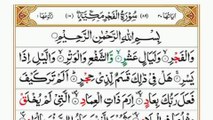 سُوْرَةُ الْفَجْرِ مَكِّیَّةٌ
بِسْمِ اللّٰهِ الرَّحْمٰنِ الرَّحِیْمِ
وَالْفَجْرِ ۙ وَلَیَالٍ عَشْرٍ ۙ وَّالشَّفْعِ وَالْوَتْرِ ۙ وَالَّیْلِ اِذَا
یَسْرِ ۚ هَلْ فِیْ ذٰلِكَ قَسَمٌ لِّذِیْ حِجْرٍ ؕ اَلَمْ تَرَ كَیْفَ
فَعَلَ رَبُّكَ بِعَادٍ ۙ اِرَمَ ذَاتِ الْعِمَادِ ۙ الَّتِیْ لَمْ یُخْلَقْ